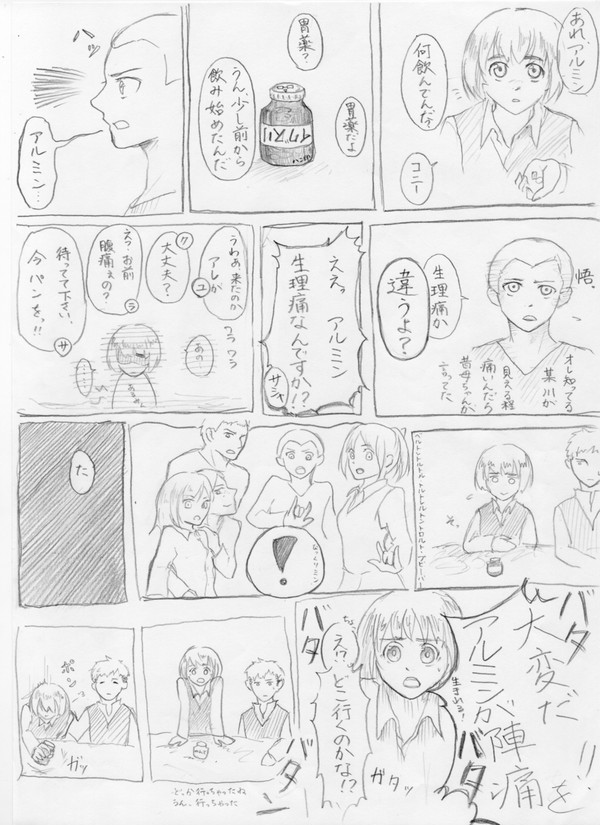 あれ、アルミン
何飲んでんだ？
コニー
胃薬だよ
胃薬？
うん、少し前から
飲み始めたんだ
イグスリ
ハッ
アルミン…
悟。
生理痛か
違うよ？
オレ知ってる
見える程
痛いんだら
昔母ちゃんが
言ってた
ええっ アルミン
生理痛なんですか!?
サシャ
うわぁ来たのか
アレが
ユ
大丈夫？
クリ
え？お前
腹痛えの？
ラ
待ってて下さい、
今パンをっ!!
サ
ワラワラ
あの…
そ。
びっくりミン
た
大変だ
アルミンが陣痛を!!
生まれる！
バタ
バタ
バタ
バタ
ちょ
え!?どこ行くのかな!?
ガタッ
どっか行っちゃったね
うん、行っちゃった
ポンッ
ガッ